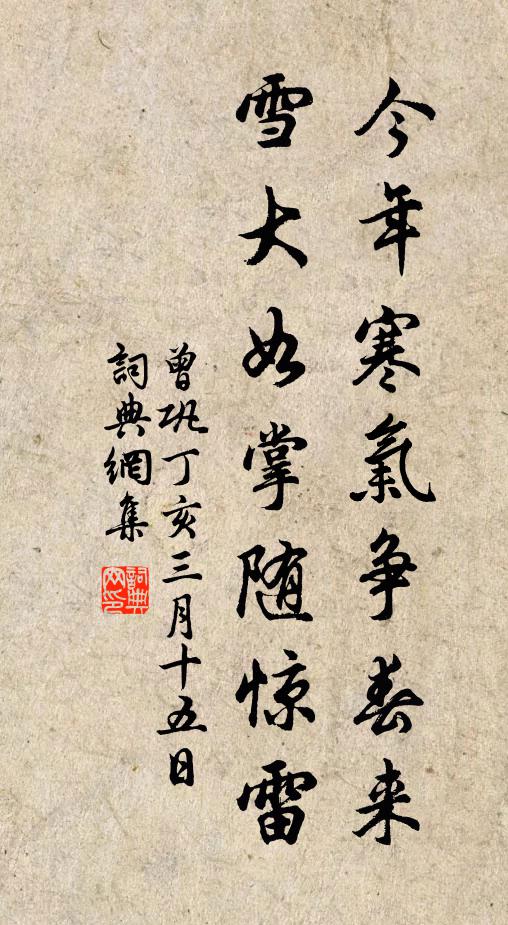 今年寒氣争春来
雪大如掌随惊雷
曾巩丁亥三月十五日
詞典網集
詞典网印